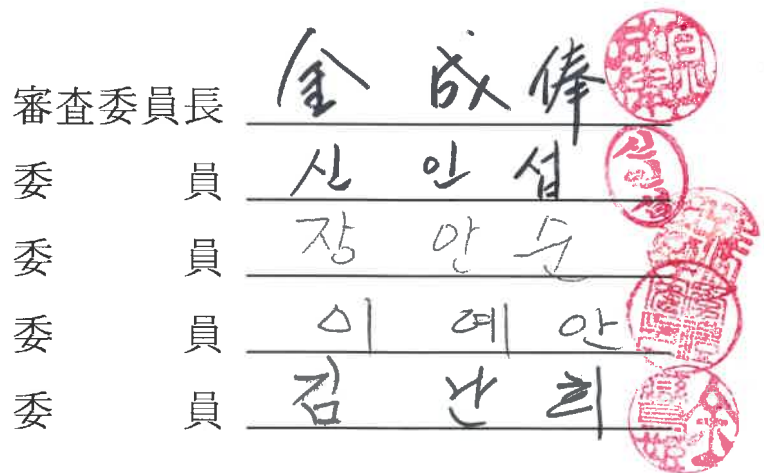 審査委員長 金成俸
委員 신인섭 신인섭
委員 장안순
委員 이예안
委員 김난희